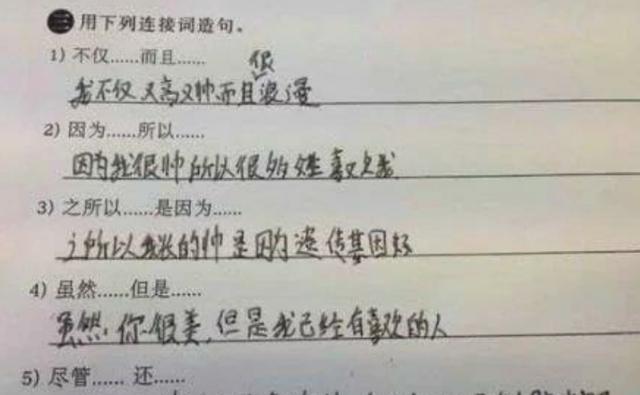 三 用下列连接词造句。
1) 不仅……而且……
我不仅又高又帅而且很浪漫
2) 因为……所以……
因为我很帅所以很多女生喜欢我
3) 之所以……是因为……
之所以我长的帅是因为遗传基因好
4) 虽然……但是……
虽然,你很美,但是我已经有喜欢的人
5) 尽管…… 还……